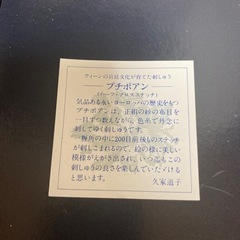 ウィーンの宮廷文化が育てた刺しゅう
プチポアン
(ハーフ・クロスステッチ)
気品ある永いヨーロッパの歴史をもつ
プチポアンは、正絹の紗の布目を
一目ずつ数えながら、色糸で丹念に
刺してゆく刺しゅうです。
一極角の中に200目前後ものステッチ
が刺しこまれるので、絵の様に美しい
模様がえがき出され、いつ迄もこの
刺しゅうの良さを楽しんでいただける
と思います。
久家道子